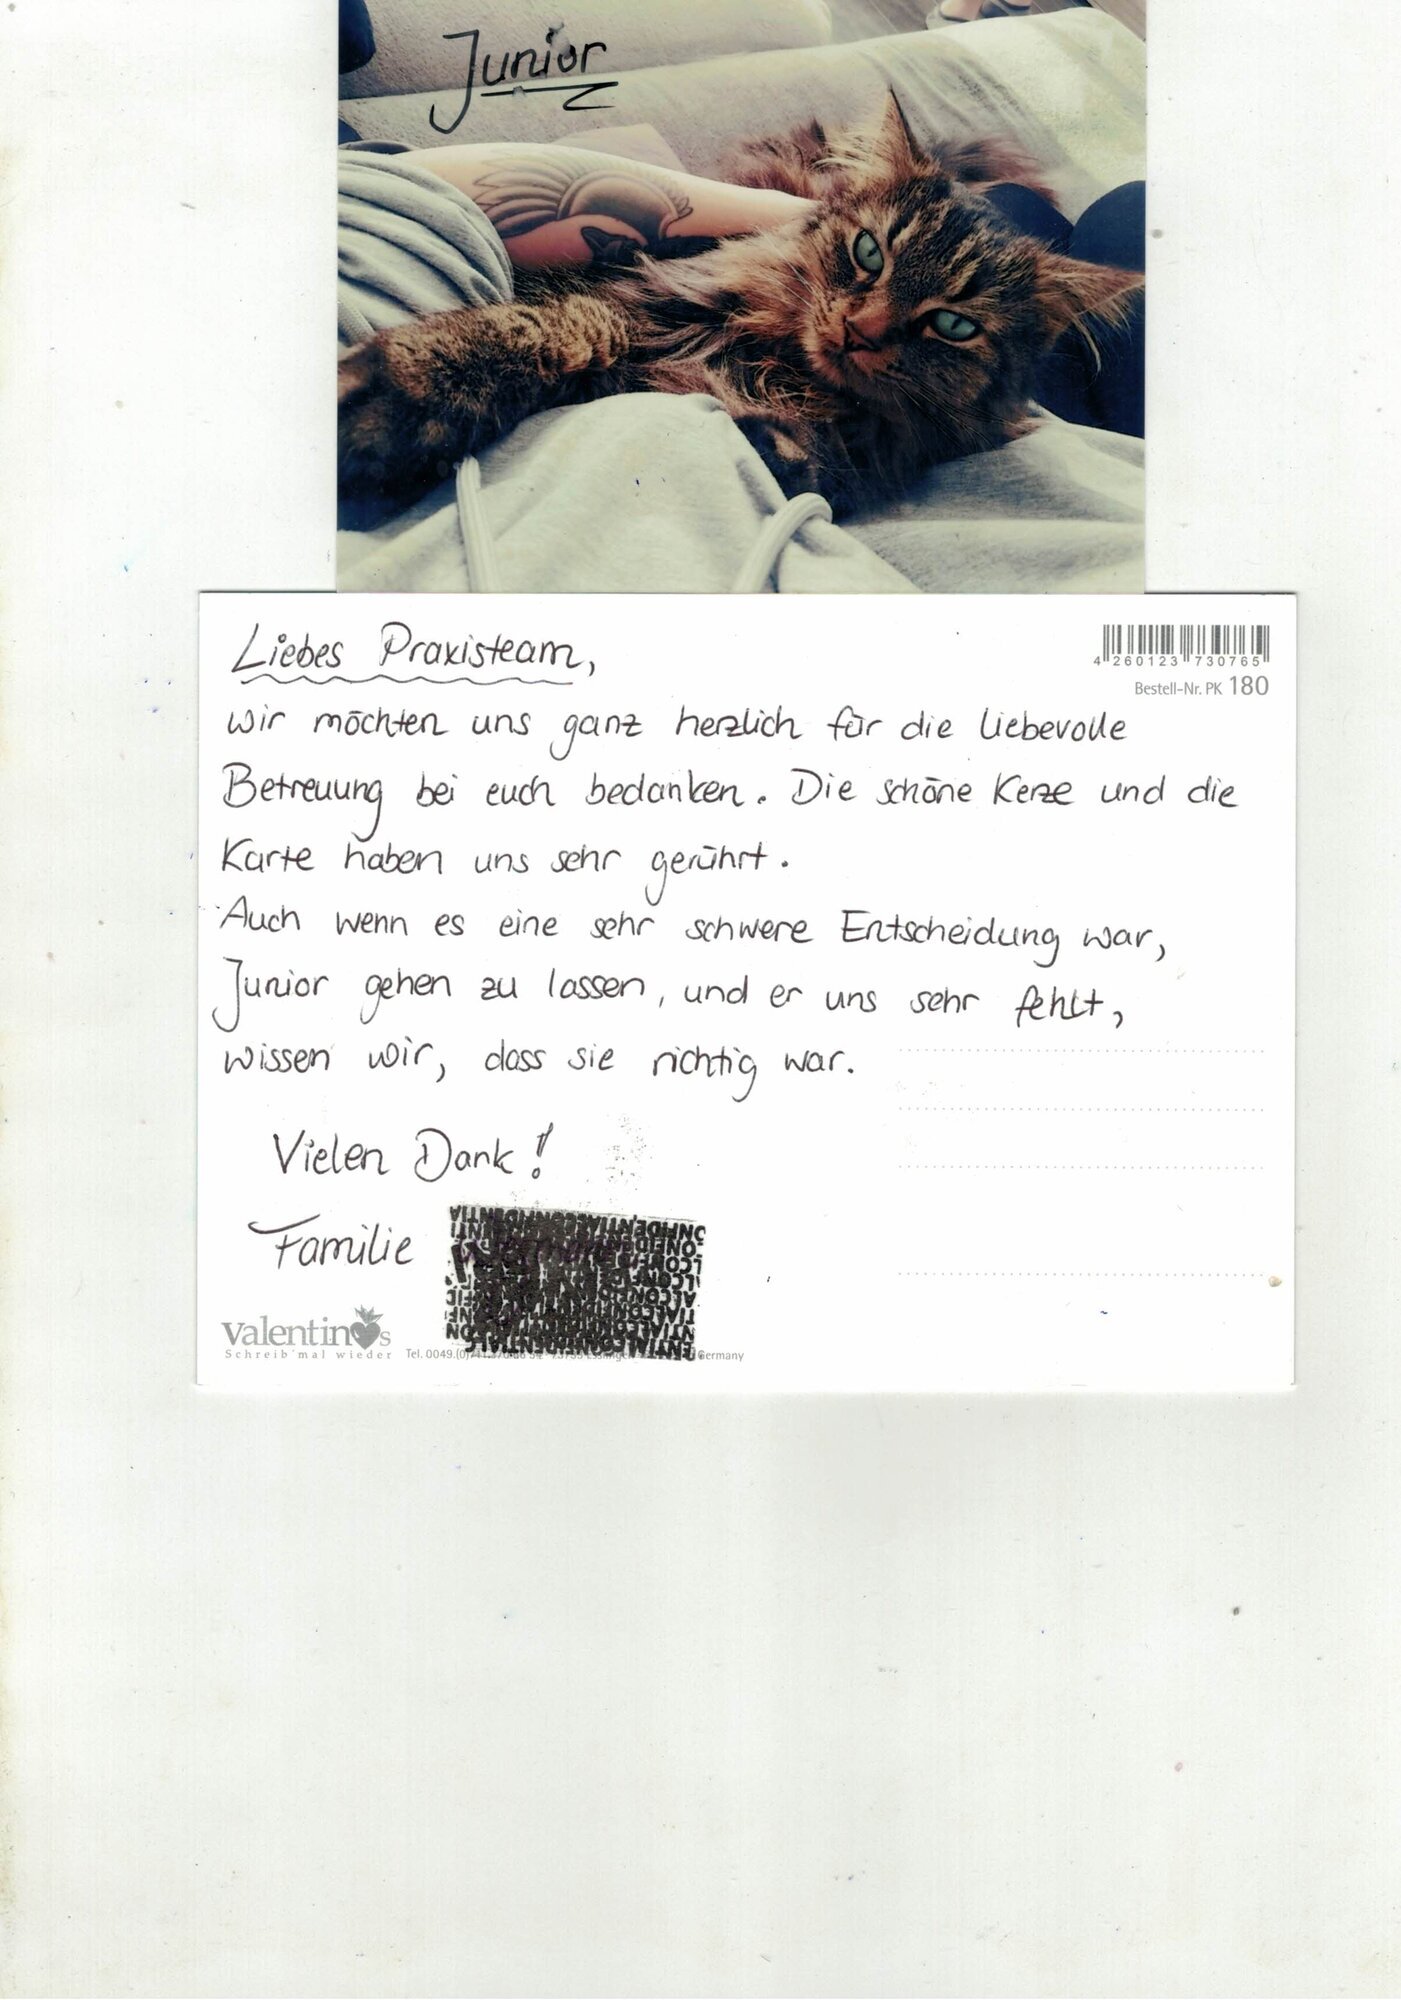 Junior
Liebes Praxisteam,
4 260123 730765
Bestell-Nr. PK 180
wir möchten uns ganz herzlich für die liebevolle
Betreuung bei euch bedanken. Die schöne Kerze und die
Karte haben uns sehr gerührt.
Auch wenn es eine sehr schwere Entscheidung war,
Junior gehen zu lassen, und er uns sehr fehlt,
wissen wir, dass sie richtig war.
Vielen Dank!
Familie
valentinos
Schreib'mal wieder
Tel. 0049.(0)711. Germany